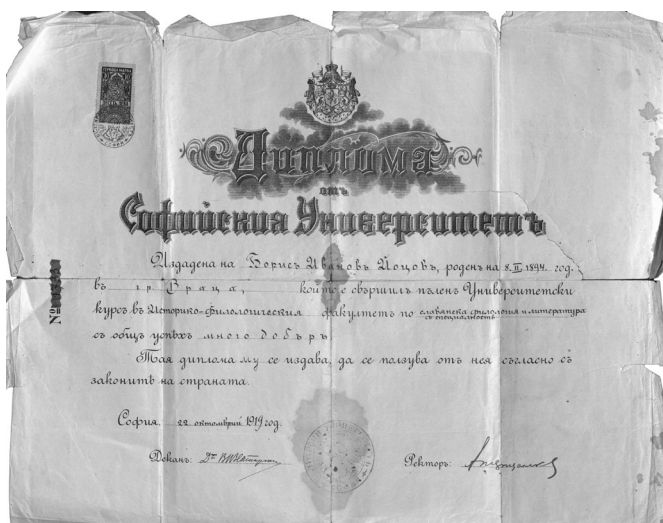 Диплома
отъ
Софийския Университетъ
Издадена на Борисъ Ивановъ Йоцовъ, роденъ на 8.II 1894. год.
въ гр. Враца, който е свършилъ пъленъ Университетски
курсъ въ Историко-филологическия факултетъ по славянска филология и литература
съ общъ успѣхъ много добъръ
Тая диплома му се издава, да се ползува отъ нея съгласно съ
законитѣ на страната.
София, 22 октомврий 1919 год.
Деканъ: Ректоръ:
№